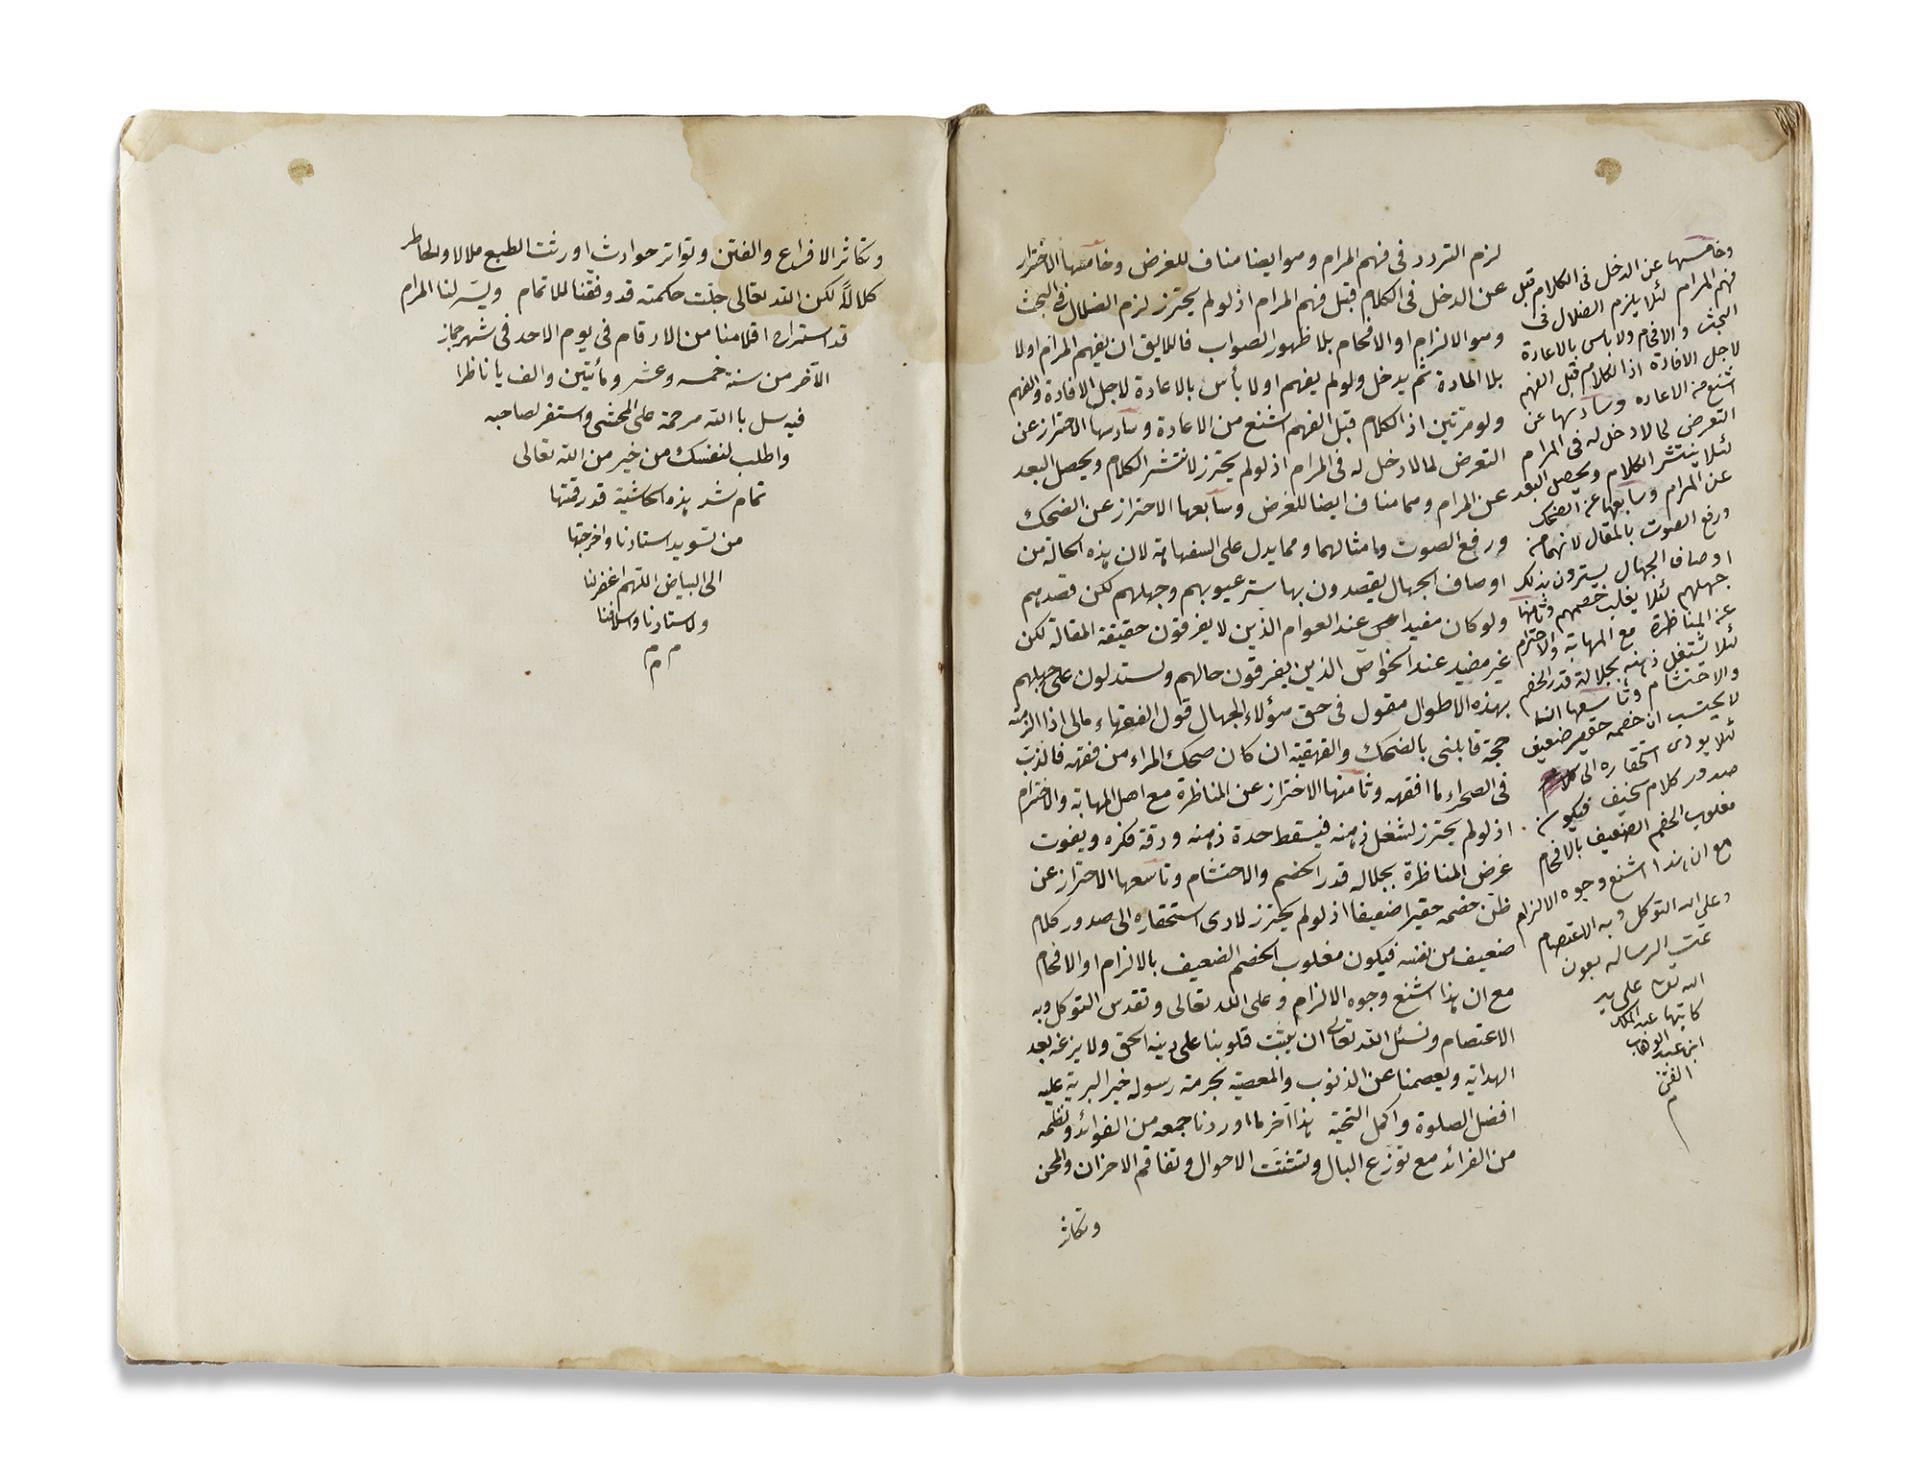 لزم التردد فى فهم المرام وهو ايضا مناف للغرض وخامسها الاحتراز
عن الدخل فى الكلام قبل فهم المرام اذ لو لم يحترز لزم الضلال فى البحث
وهو الالزام او الافحام بلا ظهور الصواب فاللايق ان يفهم المرام اولا
بلا اعادة ثم يدخل ولو لم يفهم اولا بأس بالاعادة لاجل الافادة والفهم
ولو مرتين اذ الكلام قبل الفهم اشنع من الاعادة وسادسها الاحتراز عن
التعرض لما لا دخل له فى المرام اذ لو لم يحترز لانتشر الكلام ويحصل البعد
عن المرام وهما مناف ايضا للغرض وسابعها الاحتراز عن الضحك
ورفع الصوت وامثالهما ومما يدل على السفاهة لان هذه الحالة من
اوصاف الجهال يقصدون بها ستر عيوبهم وجهلهم لكن قصدهم
ولو كان مفيدا عند العوام الذين لا يفرقون حقيقة المقالة لكن
غير مفيد عند الخواص الذين يفرقون حالهم ويستدلون على جهلهم
بهذه الاطوال مقول فى حق هؤلاء الجهال قول الفقهاء مالى اذا الزمته
حجة قابلنى بالضحك والقهقهة ان كان ضحك المراء من فقهه فالذئب
فى الصحراء ما افقهه وثامنها الاحتراز عن المناظرة مع اهل المهابة والاحترام
اذ لو لم يحترز لشغل ذهنه فيسقط حدة ذهنه ودقة فكره ويفوت
غرض المناظرة بجلاله قدر الخصم والاحتشام وتاسعها الاحتراز عن
ظن خصمه حقيرا ضعيفا اذ لو لم يحترز لادى استحقاره الى صدور كلام
ضعيف من نفسه فيكون مغلوب الخصم الضعيف بالالزام او الافحام
مع ان هذا اشنع وجوه الالزام وعلى الله تعالى وتقدس التوكل وبه
الاعتصام ونسئل الله تعالى ان يثبت قلوبنا على دينه الحق ولا يزغه بعد
الهداية ويعصمنا عن الذنوب والمعصية بحرمة رسوله خير البرية عليه
افضل الصلوة واكمل التحية هذا آخر ما اوردنا جمعه من الفوائد ونظمه
من الفرائد مع توزع البال وتشتت الاحوال وتفاقم الاحزان والمحن
وتكاثر
وخامسها عن الدخل فى الكلام قبل
فهم المرام لئلا يلزم الضلال فى
البحث والافحام ولا باس بالاعادة
لاجل الافادة اذ الكلام قبل الفهم
اشنع من الاعادة وسادسها عن
التعرض لما لا دخل له فى المرام
لئلا ينتشر الكلام ويحصل البعد
عن المرام وسابعها عن الضحك
ورفع الصوت بالمقال لانهما من
اوصاف الجهال يسترون بذلك
جهلهم لئلا يغلب خصمهم وثامنها
عن المناظرة مع المهابة والاحترام
لئلا يشتغل ذهنه بجلالة قدر الخصم
والاحتشام وتاسعها ان
لا يحتسب ان خصمه حقير ضعيف
لئلا يودى استحقاره الى
صدور كلام سخيف فيكون
مغلوب الخصم الضعيف بالافحام
مع ان هذا اشنع وجوه الالزام
وعلى الله التوكل وبه الاعتصام
تمت الرساله بعون
الله تعالى على يد
كاتبها عبد الملك
ابن عبد الوهاب
وتكاثر الافزاع والفتن وتواتر حوادث اورثت الطبع ملالا والخاطر
كلالة لكن الله تعالى جلت حكمته قد وفقنا للاتمام ويسر لنا المرام
قد استراح اقلامنا من الارقام فى يوم الاحد فى شهر جماز
الآخر من سنة خمسه وعشر ومأتين والف يا ناظرا
فيه سل بالله مرحمة على المحشى واستغفر لصاحبه
واطلب لنفسك من خير من الله تعالى
تمام شد هذه الحاشية قد رقمتها
من تسويد استادنا واخرجتها
الى البياض اللهم اغفر لنا
ولاستادنا واسلافنا
م م م